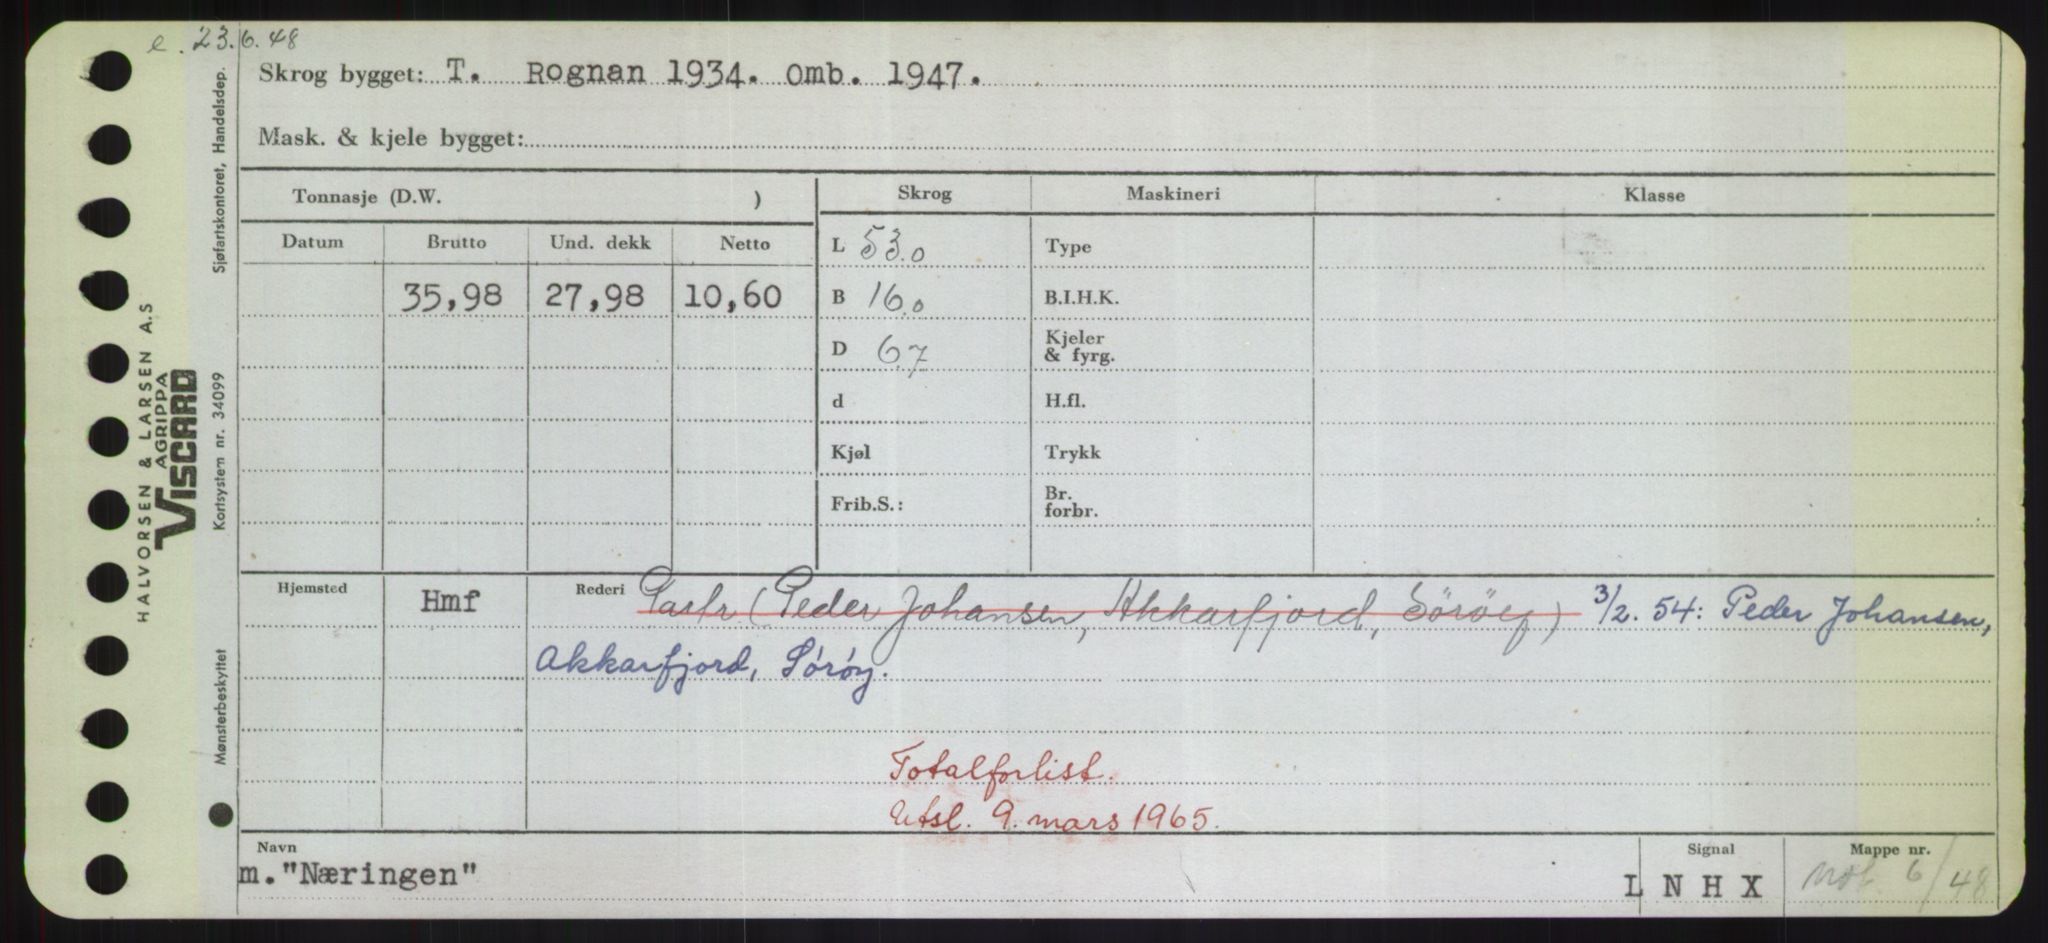 e. 23.6.48
Skrog bygget: T. Rognan 1934. Omb. 1947.
Mask. & kjele bygget:
Tonnasje (D.W. )
Skrog
Maskineri
Klasse
Datum Brutto Und. dekk Netto
35,98 27,98 10,60
L 53.0
B 16.0
D 6.7
d
Kjøl
Frib.S.:
Type
B.I.H.K.
Kjeler
& fyrg.
H.fl.
Trykk
Br.
forbr.
Hjemsted Hmf
Rederi Partr (Peder Johansen, Akkarfjord, Söröy) 3/2. 54: Peder Johansen,
Akkarfjord, Sørøy.
Totalforlist.
Utsl. 9. mars 1965.
Navn
m. "Næringen"
Signal
L N H X
Mappe nr.
6/48
HALVORSEN & LARSEN A.S
AGRIPPA
VISCARD
Sjøfartskontoret, Handelsdep.
Kortsystem nr. 34099
Mønsterbeskyttet